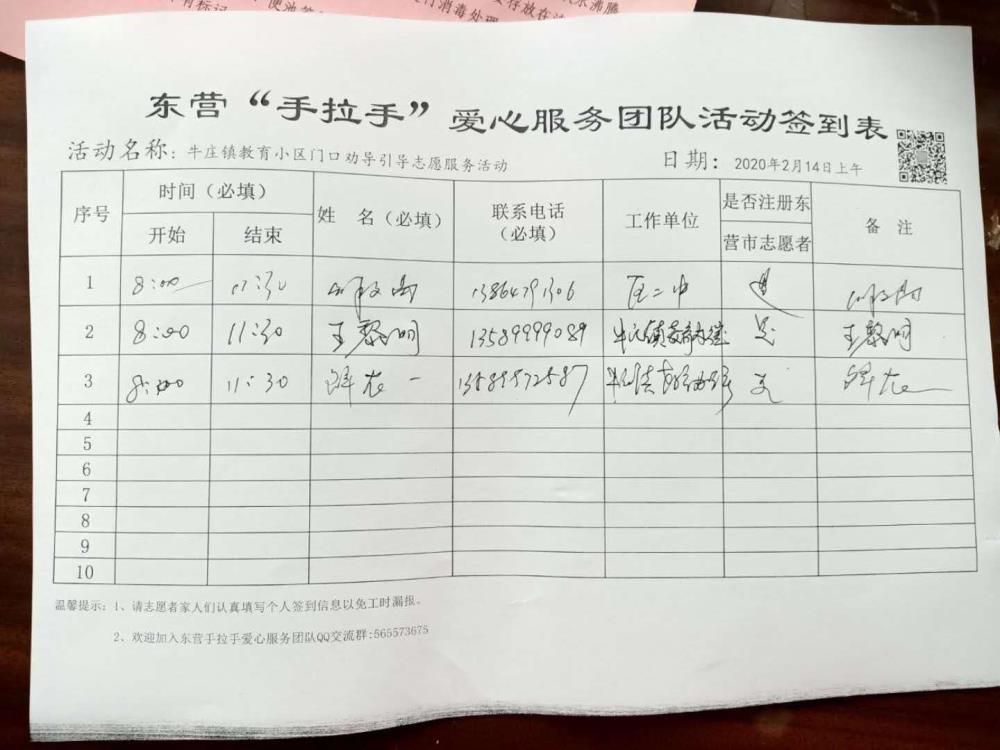 消毒处理
东营“手拉手”爱心服务团队活动签到表
活动名称：牛庄镇教育小区门口劝导引导志愿服务活动 日期：2020年2月14日上午
序号 时间（必填） 姓 名（必填） 联系电话（必填） 工作单位 是否注册东营市志愿者 备 注
开始 结束
1 8:00 11:30 13864791306 是
2 8:00 11:30 王黎明 13589999089 是 王黎明
3 8:00 11:30 13589972587 是
4
5
6
7
8
9
10
温馨提示：1、请志愿者家人们认真填写个人签到信息以免工时漏报。
2、欢迎加入东营手拉手爱心服务团队QQ交流群:565573675